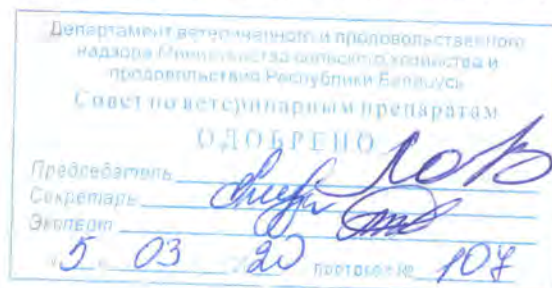 Департамент ветеринарного и продовольственного
надзора Министерства сельского хозяйства и
продовольствия Республики Беларусь
Совет по ветеринарным препаратам
ОДОБРЕНО
Председатель
Секретарь
Эксперт
5 03 20 протокол № 107